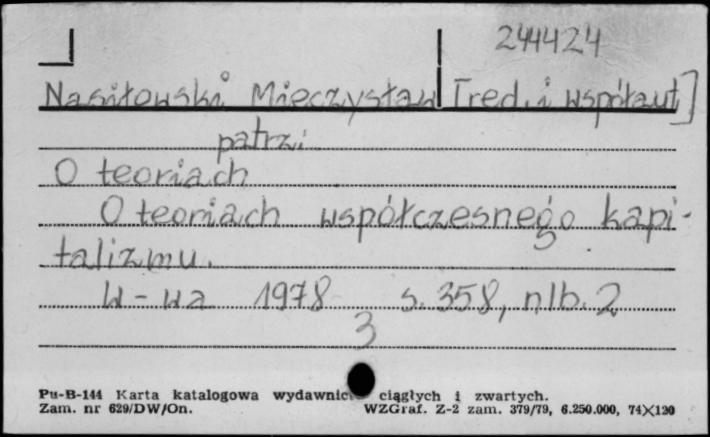 244424
Nasiłowski Mieczysław [red. i współaut]
patrz:
O teoriach
O teoriach współczesnego kapi-
talizmu.
W-wa 1978 s. 358, nlb. 2
3
Pu-B-144 Karta katalogowa wydawnic ciągłych i zwartych.
Zam. nr 629/DW/On. WZGraf. Z-2 zam. 379/79, 6.250.000, 74X120